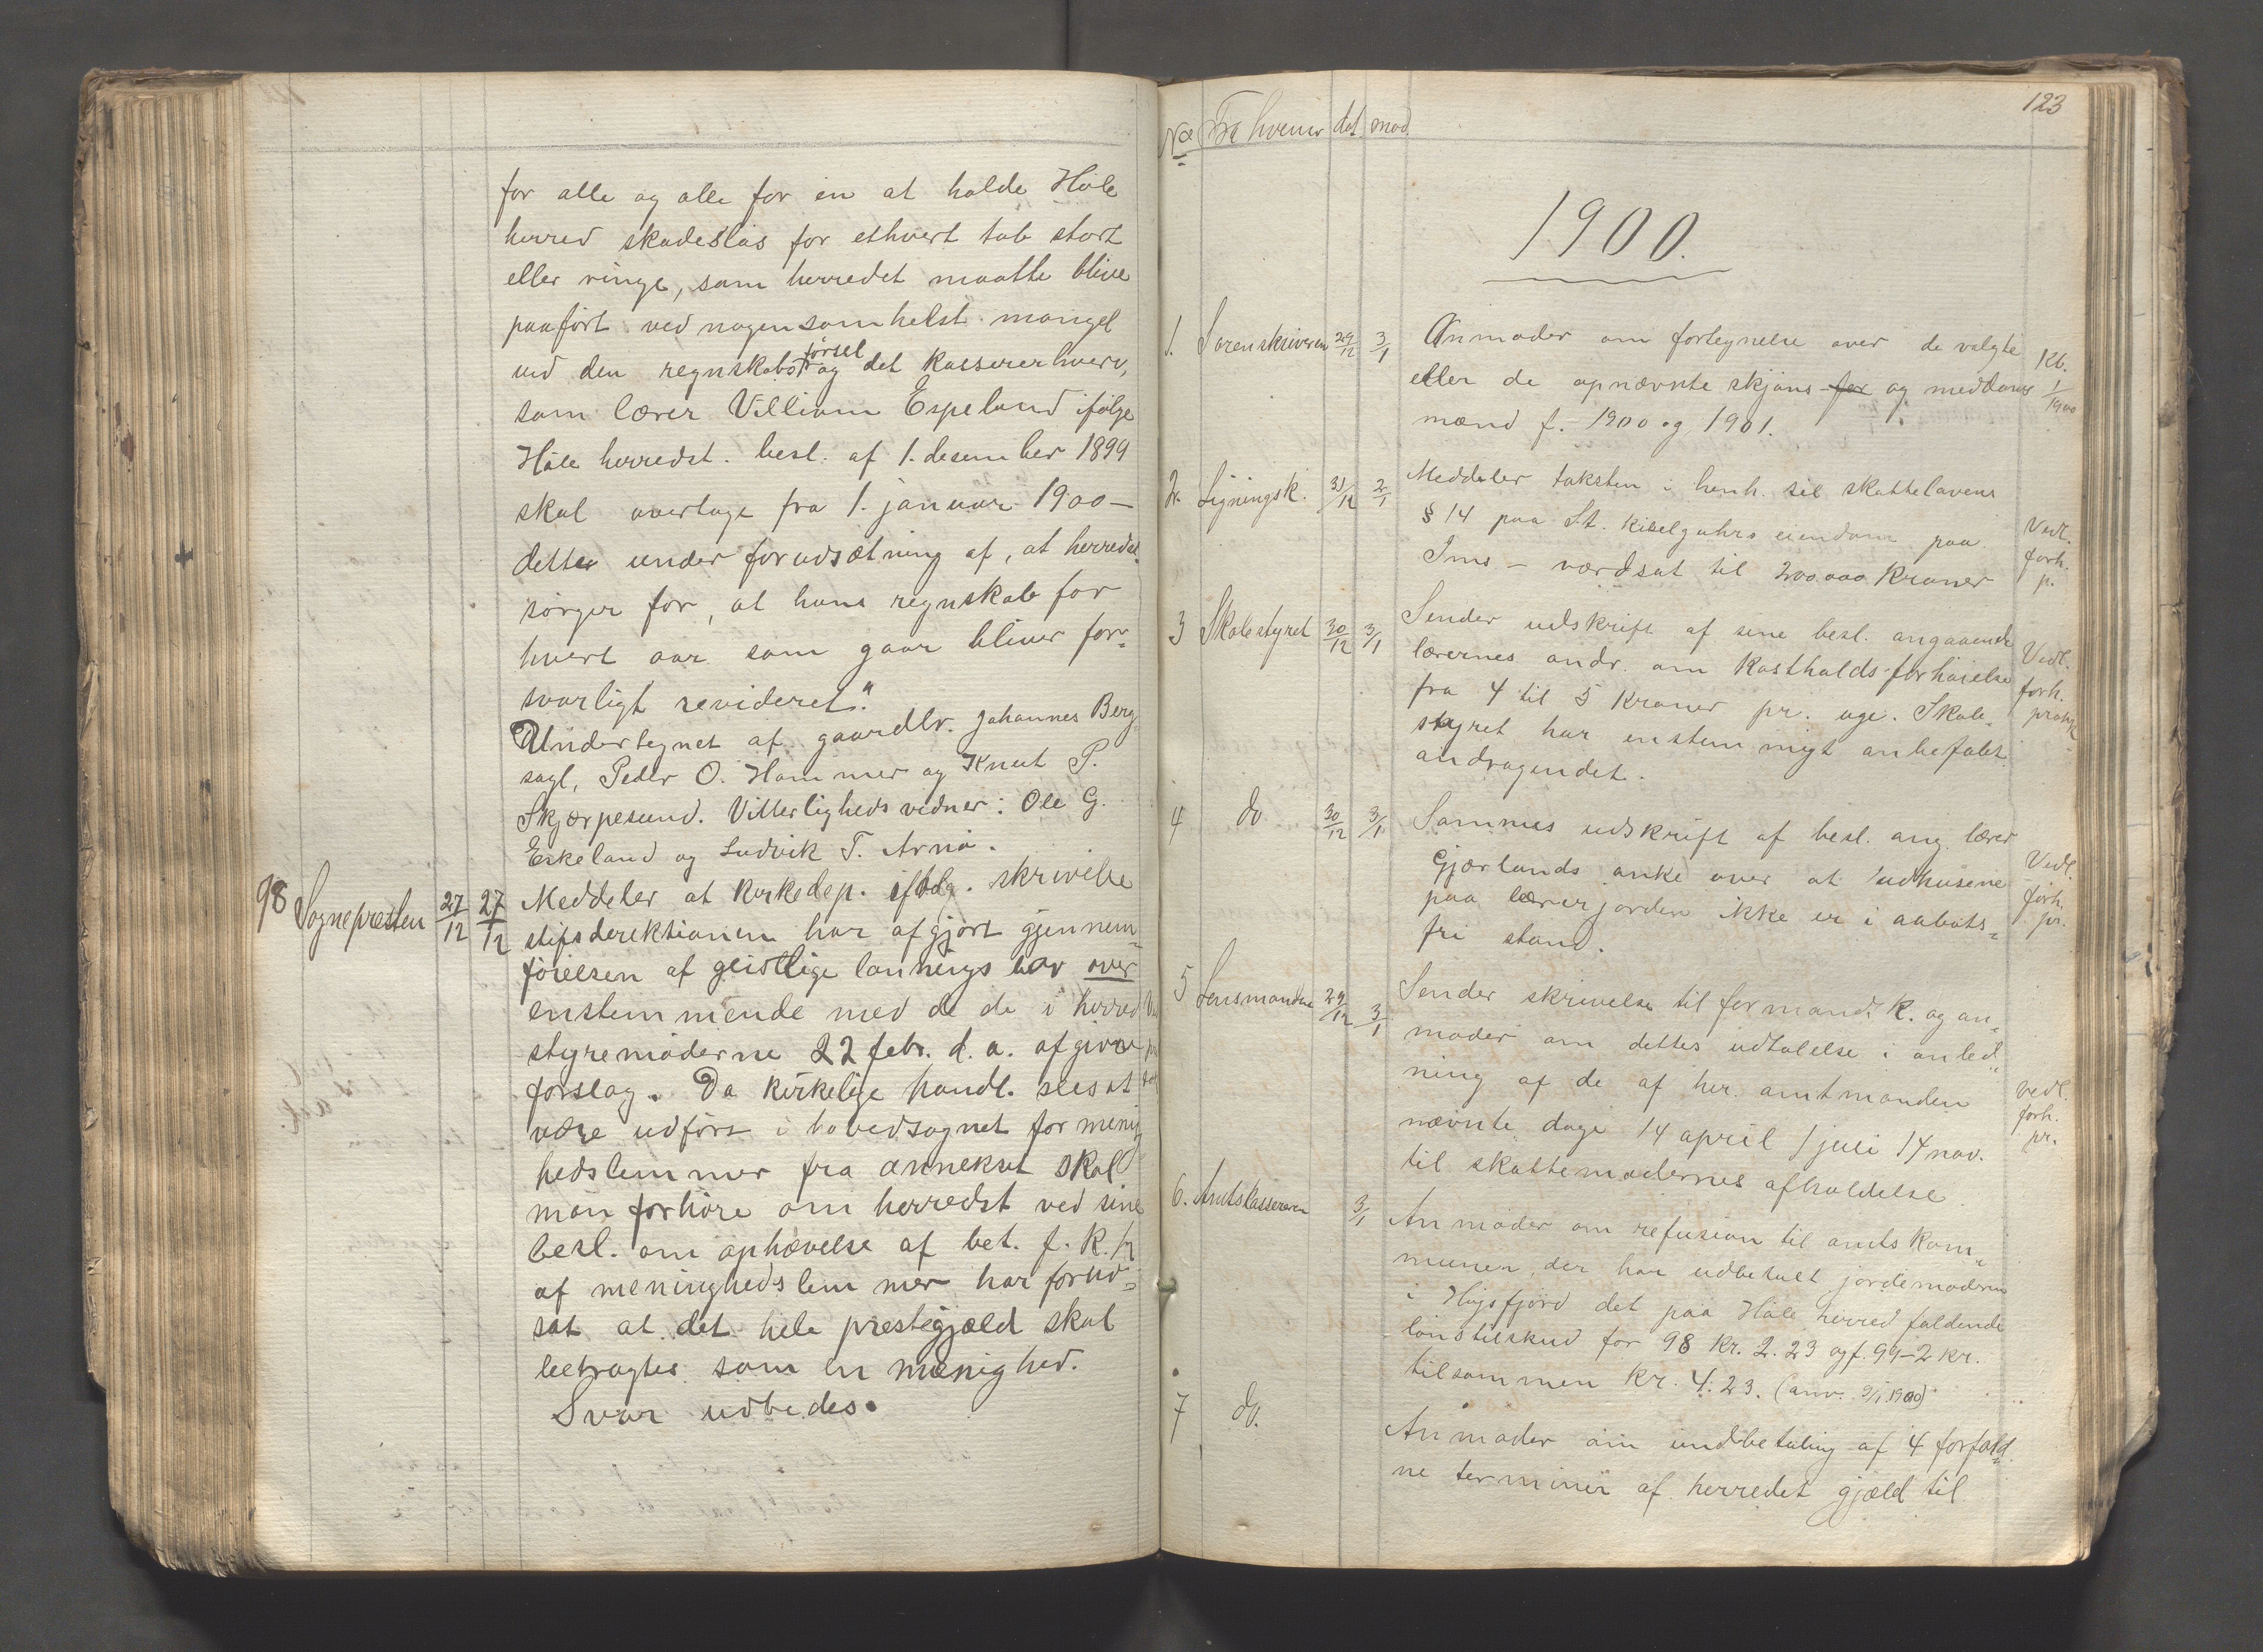 for alle og alle for en at holde Høle
herred skadesløs for ethvert tab stort
eller ringe, som herredet maatte blive
paaført ved nogensomhelst mangel
ved den regnskabsførsel og det kassererhverv,
som lærer Villiam Espeland ifølge
Høle herredst. besl. af 1. desember 1899
skal overtage fra 1. januar 1900 –
dette under forudsætning af, at herredet
sørger for, at hans regnskab for
hvert aar som gaar bliver for-
svarligt revideret."
Undertegnet af gaardbr. Johannes Berg-
sagl, Peder O. Hammer og Knut P.
Skjærpesund. Vitterlighedsvidner: Ole G.
Eskeland og Ludvik T. Arnø.
98 Sognepresten 27/12 27/12 Meddeler at Kirkedep. ifølg. skrivelse
stiftsdirektionen har afgjort gjennem-
førelsen af geistlige lønningslov over
enstemmende med de de i herred
styremøderne 22 febr. d. a. afgivne
forslag. Da kirkelige handl. sees at
være udført i hovedsognet for menig
hedslemmer fra annekset skal
man forhøre om herredst ved sine
besl. om ophævelse af bet. f. k. h
af menighedslemmer har forud-
sat at det hele prestegjæld skal
betragtes som en menighed.
Svar udbedes.
123
No Fra hvem dat mod.
1900.
1. Sorenskriveren 29/12 3/1 Anmoder om fortegnelse over de valgte
eller de opnævnte skjøns for og meddoms
mænd f. 1900 og 1901.
Kb. 1/1 1900
2. Ligningsk. 31/12 2/1 Meddeler taksten i henh. til skattelovens
§ 14 paa St. kiselguhrs eiendom paa
Ims – værdsat til 200.000 kroner
Vedl.
forh.
p.
3 Skolestyret 30/12 3/1 Sender udskrift af sine besl. angaaende
lærernes andr. om kostholds-forhøielse
fra 4 til 5 kroner pr. uge. Skole-
styret har enstemmigt anbefalet
andragendet.
Vedl.
forh.
4 do 30/12 3/1 Sammes udskrift af besl. ang. lærer
Gjærlands anke over at udhusene
paa lærerjorden ikke er i aabots-
fri stand.
Vedl.
forh.
pr.
5 Lensmanden 29/12 3/1 Sender skrivelse til formandsk. og an-
moder om dettes udtalelse i anled-
ning af de af her. amtmanden
nævnte dage 14 april 1 juli 14 nov.
til skattemødernes afholdelse
vedl.
forh.
pr.
6. Amtskassereren 3/1 Anmoder om refusion til amtskom-
munen, der har udbetalt jordemoderen
i Høgsfjord det paa Høle herred faldende
lønstilskud for 98 kr. 2.23 og f. 99 – 2 kr.
tilsammen kr. 4.23. (anv. 9/1 1900)
7 do. Anmoder om indbetaling af 4 forfald-
ne terminer af herredet gjæld til